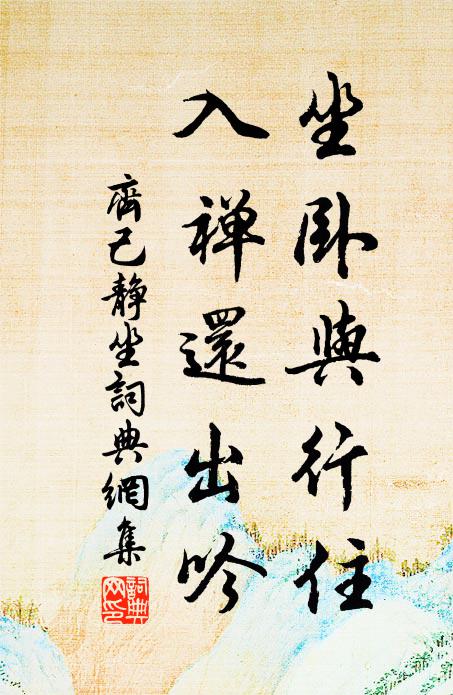 坐卧與行住
入禅還出吟
齊己靜坐詞典網集
詞典网印